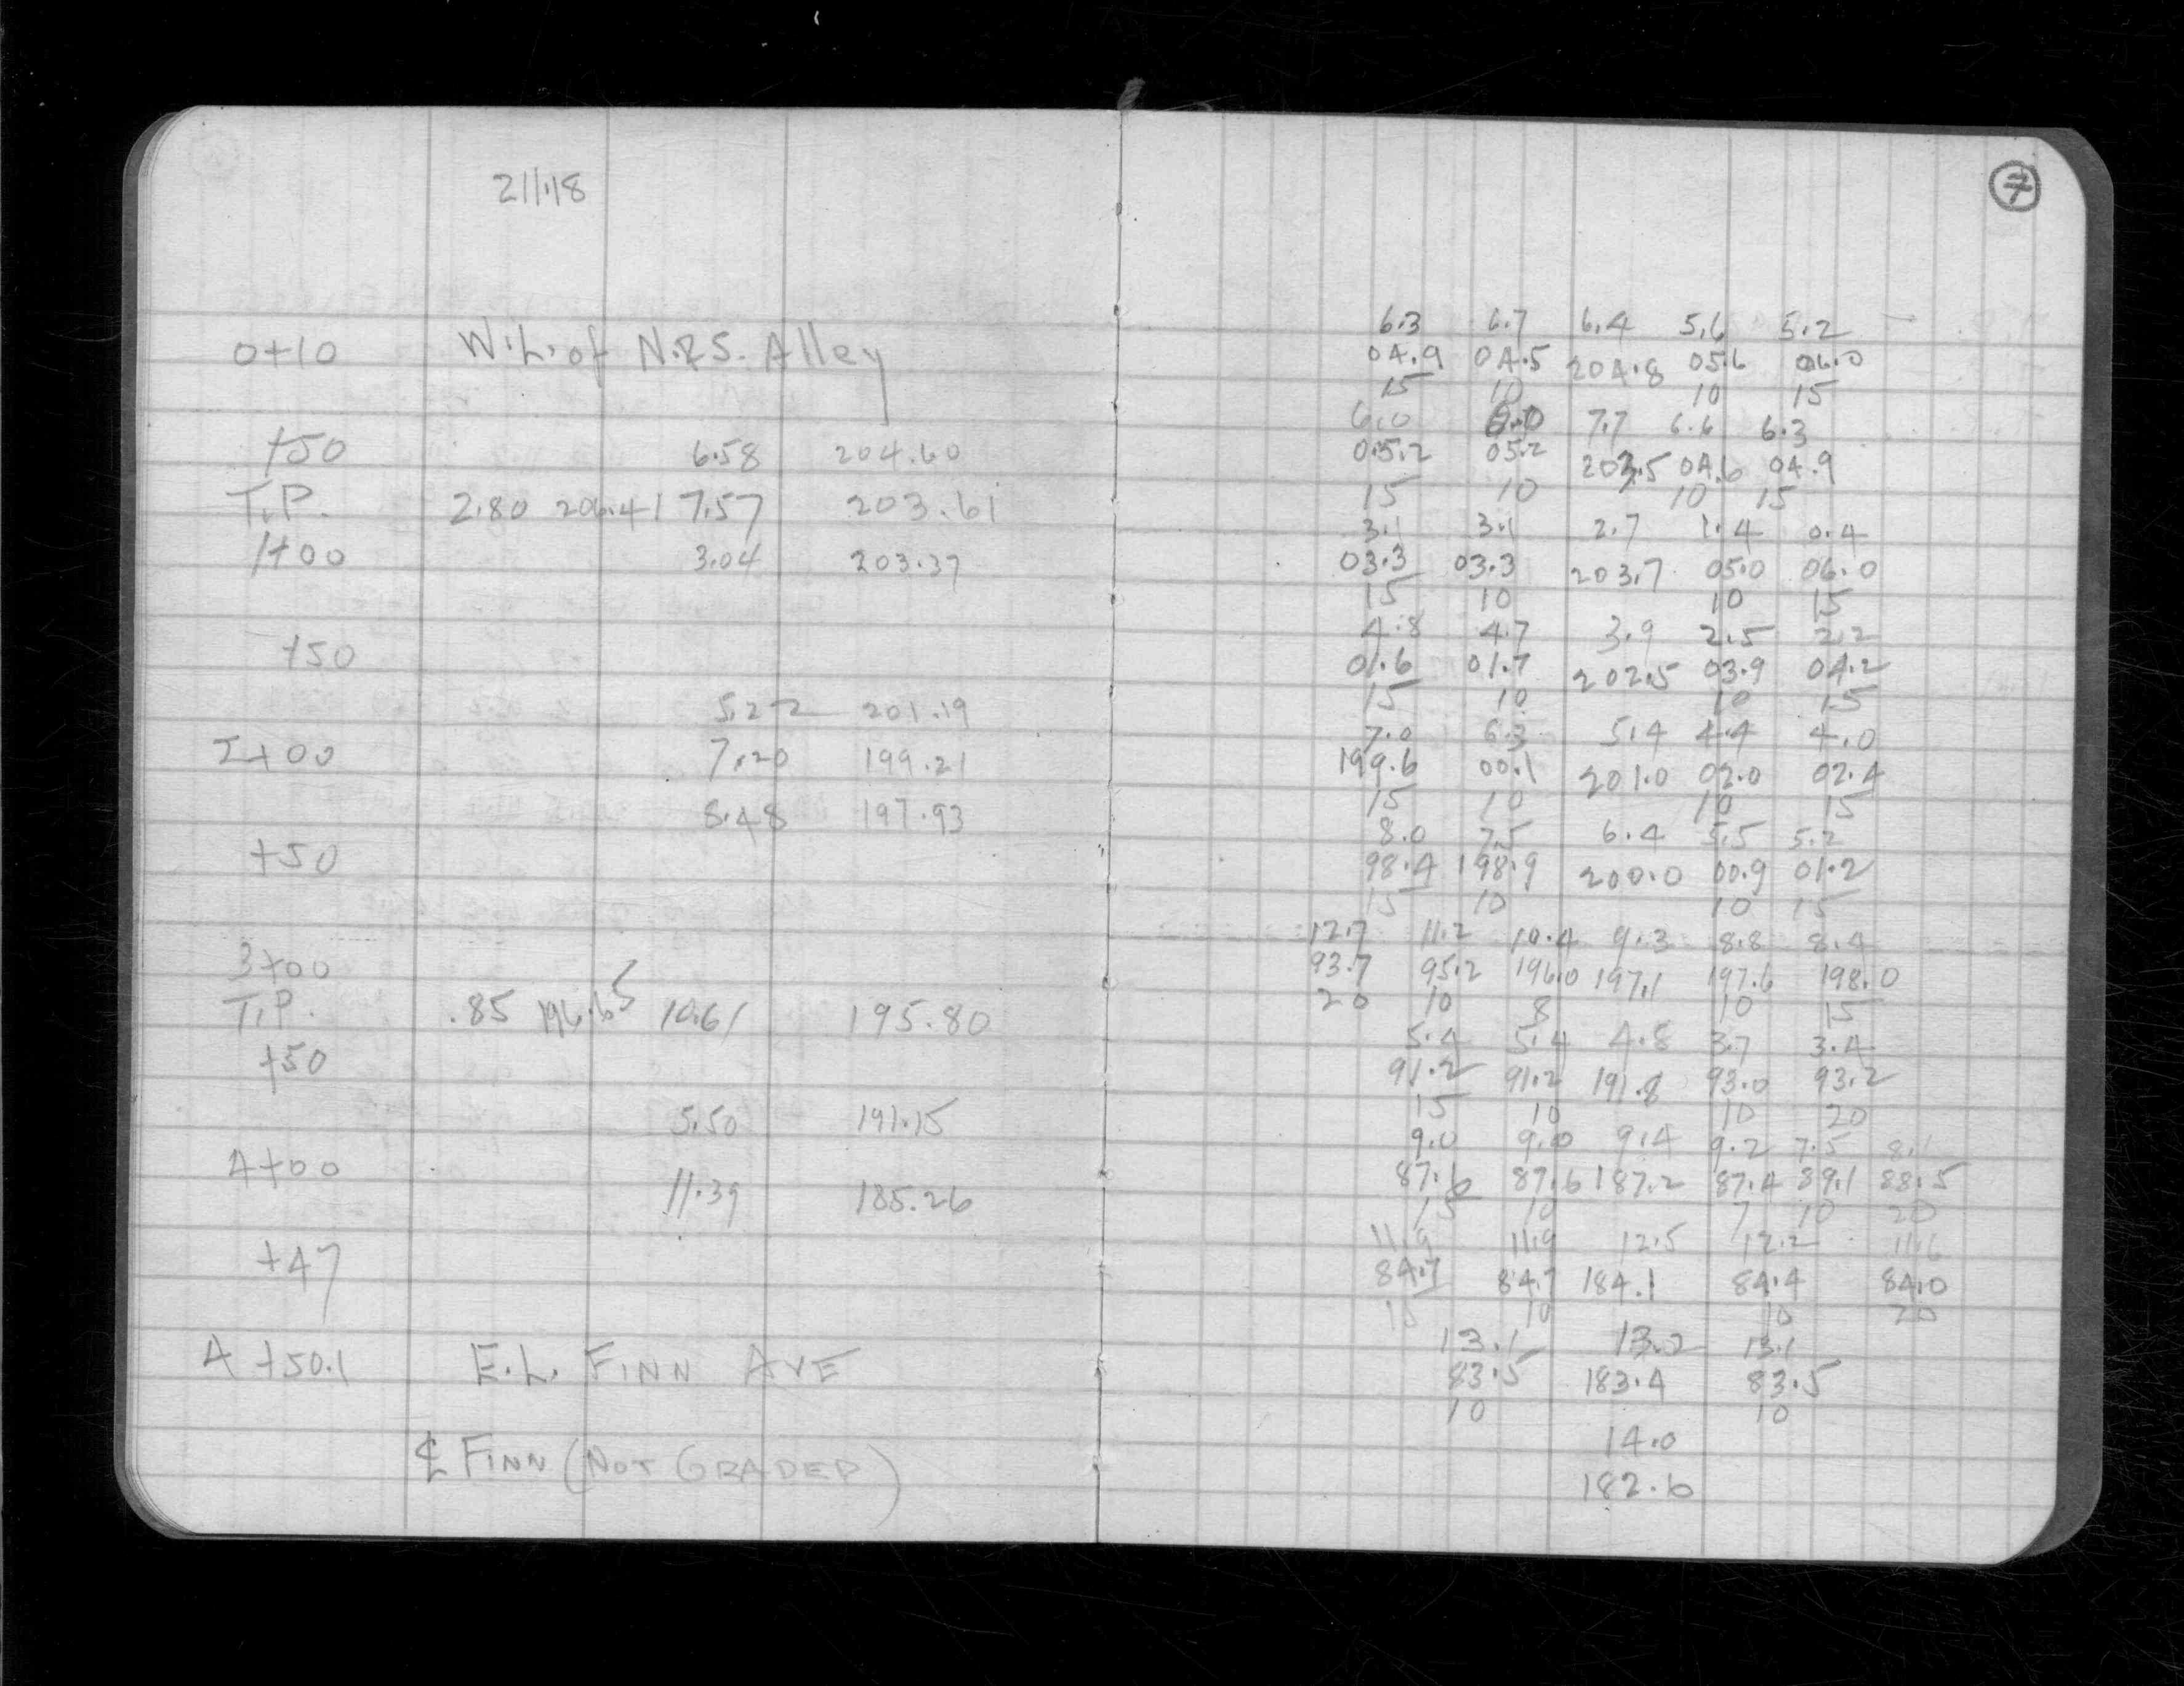 211.18
0+10 W.L. of N.&S. Alley
+50 6.58 204.60
T.P. 2.80 206.41 7.57 203.61
1+00 3.04 203.37
+50
5.22 201.19
2+00 7.20 199.21
8.48 197.93
+50
3+00
T.P. .85 196.65 10.61 195.80
+50
5.50 191.15
4+00
11.39 185.26
+47
4+50.1 E.L. FINN AVE
℄ FINN (NOT GRADED)
7
6.3 6.7 6.4 5.6 5.2
04.9 04.5 204.8 05.6 06.0
15 10 10 15
6.0 6.0 7.7 6.6 6.3
05.2 05.2 203.5 04.6 04.9
15 10 10 15
3.1 3.1 2.7 1.4 0.4
03.3 03.3 203.7 05.0 06.0
15 10 10 15
4.8 4.7 3.9 2.5 2.2
01.6 01.7 202.5 03.9 04.2
15 10 10 15
7.0 6.3 5.4 4.4 4.0
199.6 00.1 201.0 02.0 02.4
15 10 10 15
8.0 7.5 6.4 5.5 5.2
98.4 198.9 200.0 00.9 01.2
15 10 10 15
12.7 11.2 10.4 9.3 8.8 8.4
93.7 95.2 196.0 197.1 197.6 198.0
20 10 8 10 15
5.4 5.4 4.8 3.7 3.4
91.2 91.2 191.8 93.0 93.2
15 10 10 20
9.0 9.0 9.4 9.2 7.5 8.1
87.6 87.6 187.2 87.4 89.1 88.5
15 10 7 10 20
11.9 11.9 12.5 12.2 11.6
84.7 84.7 184.1 84.4 84.0
15 10 10 20
13.1 13.2 13.1
83.5 183.4 83.5
10 10
14.0
182.6